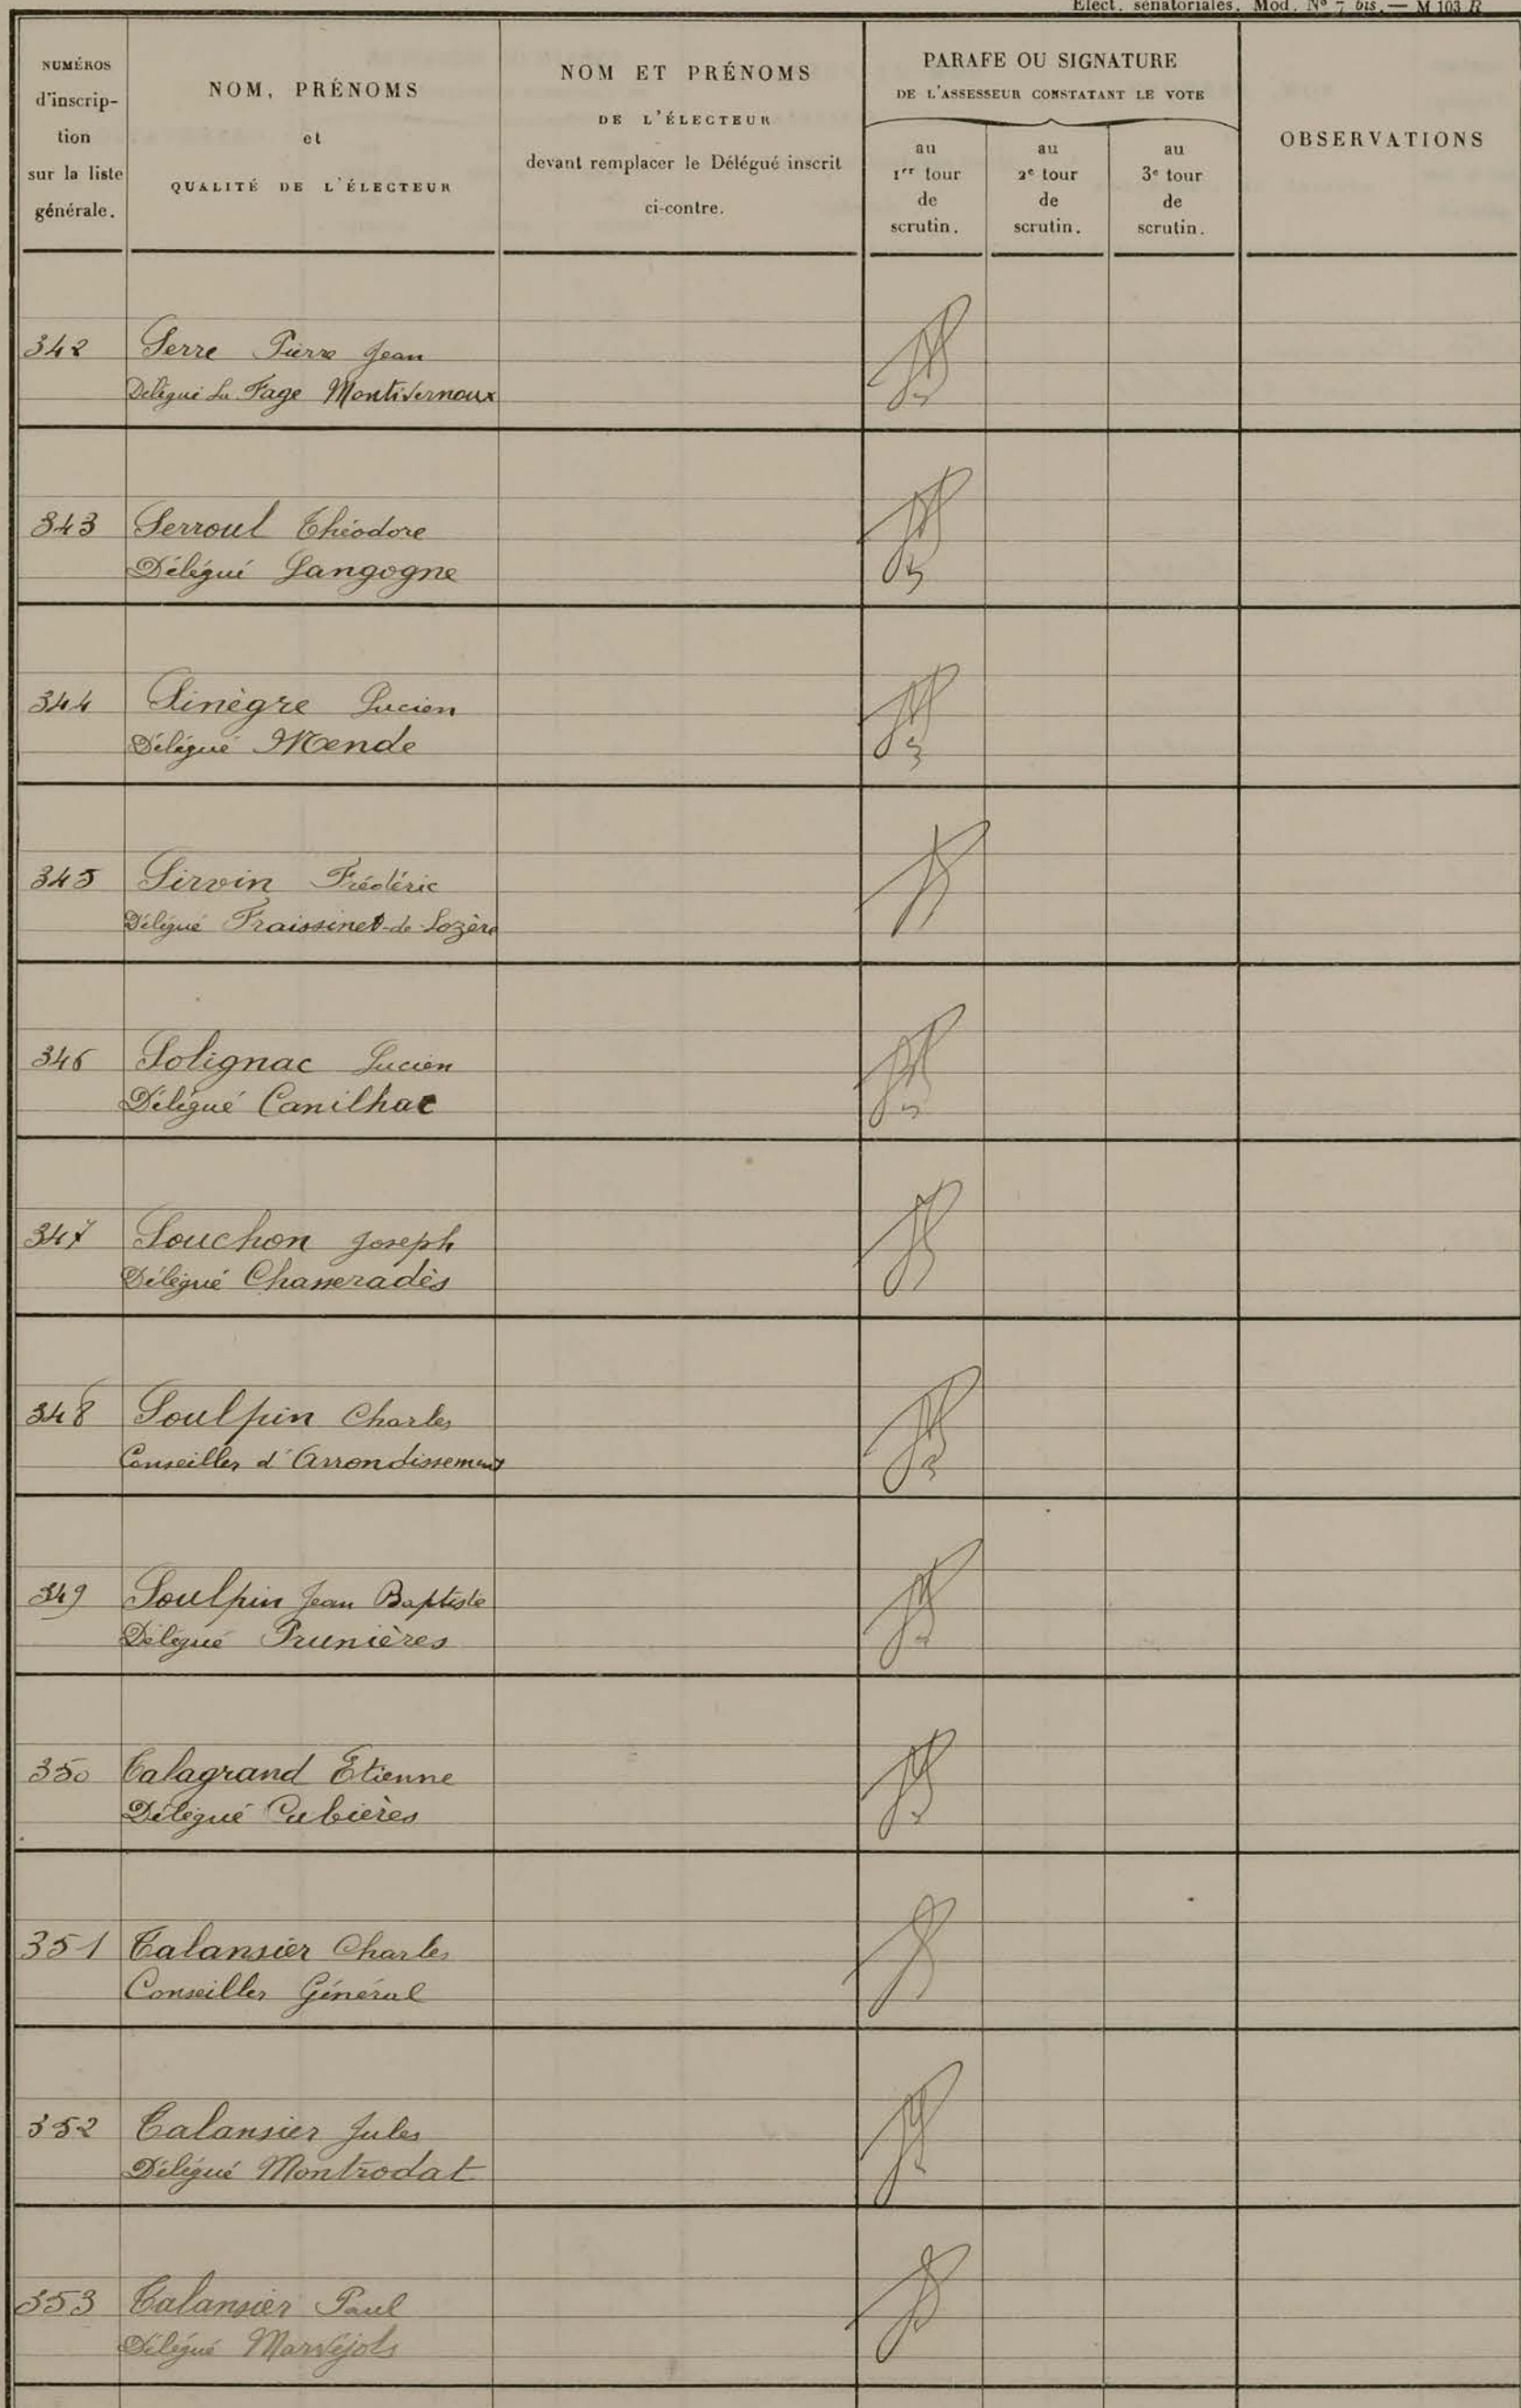 Elect. sénatoriales. Mod. N° 7 bis. — M 103 R
NUMÉROS
d'inscrip-
tion
sur la liste
générale.
NOM, PRÉNOMS
et
QUALITÉ DE L'ÉLECTEUR
NOM ET PRÉNOMS
DE L'ÉLECTEUR
devant remplacer le Délégué inscrit
ci-contre.
PARAFE OU SIGNATURE
DE L'ASSESSEUR CONSTATANT LE VOTE
au
1er tour
de
scrutin.
au
2e tour
de
scrutin.
au
3e tour
de
scrutin.
OBSERVATIONS
342 Serre Pierre Jean
Délégué La Fage Montivernoux
343 Serroul Théodore
Délégué Langogne
344 Sinègre Lucien
Délégué Mende
345 Sirvin Frédéric
Délégué Fraissinet-de-Lozère
346 Solignac Lucien
Délégué Canilhac
347 Souchon Joseph
Délégué Chasseradès
348 Soulpin Charles
Conseiller d'Arrondissement
349 Soulpin Jean Baptiste
Délégué Prunières
350 Talagrand Etienne
Délégué Cubières
351 Talansier Charles
Conseiller Général
352 Talansier Jules
Délégué Montrodat
353 Talansier Paul
Délégué Marvejols